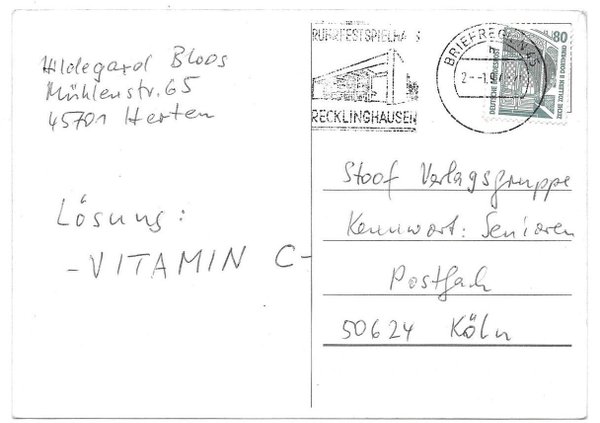 Hildegard Bloos
Mühlenstr. 65
45701 Herten
Lösung:
- VITAMIN C -
RUHRFESTSPIELHAUS
RECKLINGHAUSEN
BRIEFREGION 45
80
DEUTSCHE BUNDESPOST
ZECHE ZOLLERN II DORTMUND
Stoof Verlagsgruppe
Kennwort: Senioren
Postfach
50624 Köln